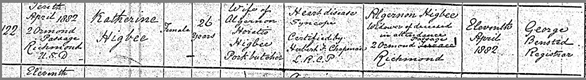 122
Tenth
April 1882
2 Ormond
Passage
Richmond
U.S.D
Katherine
Higbee
Female
26
years
Wife of
Algernon
Horatio
Higbee
Pork butcher
Heart disease
Syncope
Certified by
Herbert F. Chapman
L.R.C.P
Algernon Higbee
Widower of deceased
in attendance
Passage
2 Ormond Terrace
Richmond
Eleventh
April
1882
George
Benstid
Registrar
Eleventh